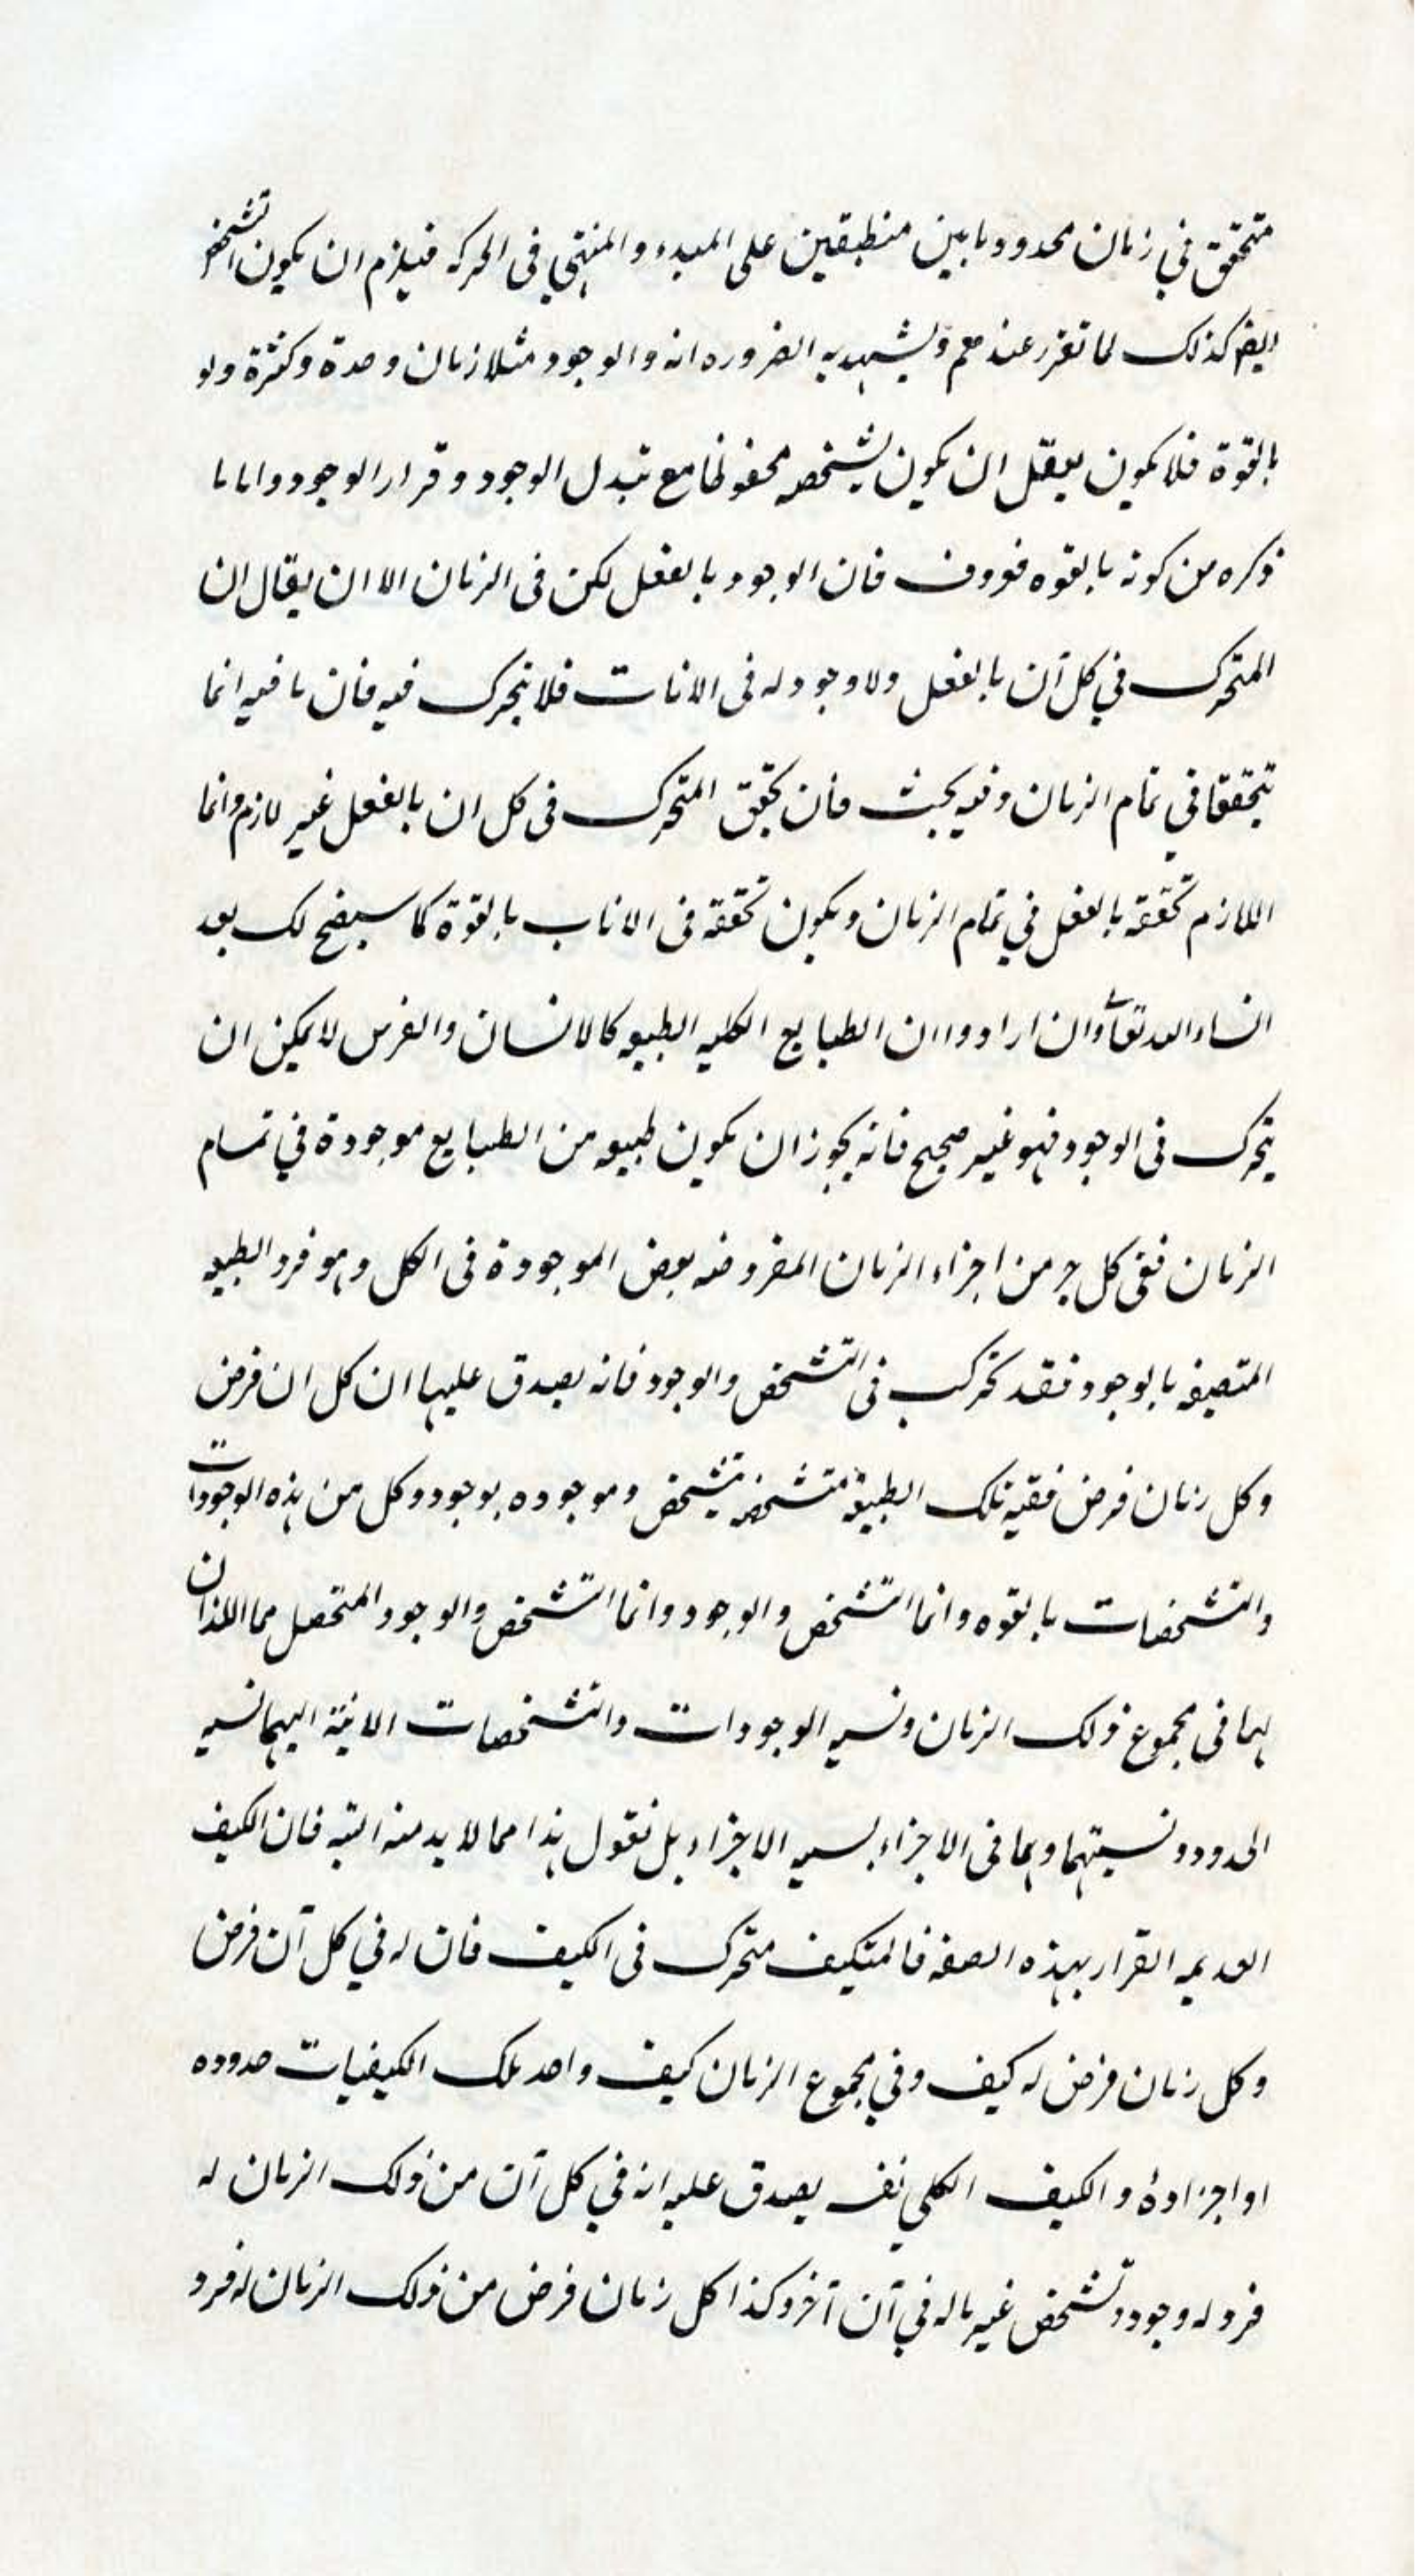 متحقق في زمان محدود بابين منطبقين على المبدء والمنتهي فى الحركه فيلزم ان يكون التشخص
ايضا كذلك لما تقرر عندهم ويشهد به الضروره انه والوجود مثلازمان وحدة وكثرة ولو
بالقوة فلا يكون يعقل ان يكون تشخصه محفوظا مع تبدل الوجود وقرار الوجود واما ما
ذكره من كونه بالقوه فان الوجود بالفعل لكن فى الزمان الا ان يقال ان
المتحرك في كل آن بالفعل ولا وجود له فى الانات فلا يتحرك فيه فان ما فيه انما
يتحققا في تمام الزمان وفيه بحث فان تحقق المتحرك فى كل ان بالفعل غير لازم وانما
اللازم تحققه بالفعل في تمام الزمان ويكون تحققه فى الاناب بالقوة كما سيضح لك بعد
انساء الله تعا وان ارادوا ان الطبايع الكليه الطبيعه كالانسان والفرس لا يمكن ان
يتحرك فى الوجود فهو غير صحيح فانه يجوز ان يكون طبيعه من الطبايع موجودة في تمام
الزمان ففى كل جزء من اجزاء الزمان المفروضه بعض الموجودة فى الكل وهو فرد الطبيعه
المتصيفه بالوجود فقد تحركت فى التشخص والوجود فانه يصدق عليها ان كل ان فرض
وكل زمان فرض ففيه تلك الطبيعة متشخصه بتشخص وموجوده بوجود وكل من هذه الوجودات
والتشخصات بالقوه وانما التشخص والوجود وانما التشخص والوجود المتحصل مما اللذان
لهما فى مجموع ذلك الزمان ونسبه الوجودات والتشخصات الانية اليهما نسبه
الحدود ونسبتهما وهما فى الاجزاء بنسبه الاجزاء بل نقول هذا مما لا بد منه البته فان الكيف
العديمه القرار بهذه الصفه فالمتكيف متحرك فى الكيف فان له في كل آن فرض
وكل زمان فرض له كيف وفي مجموع الزمان كيف واحد تلك الكيفيات حدوده
او اجزاوهٔ والكيف الكلي نفسه يصدق عليه انه في كل آن من ذلك الزمان له
فرد له وجود وتشخص غير ماله في آن آخر وكذا كل زمان فرض من ذلك الزمان له فرد